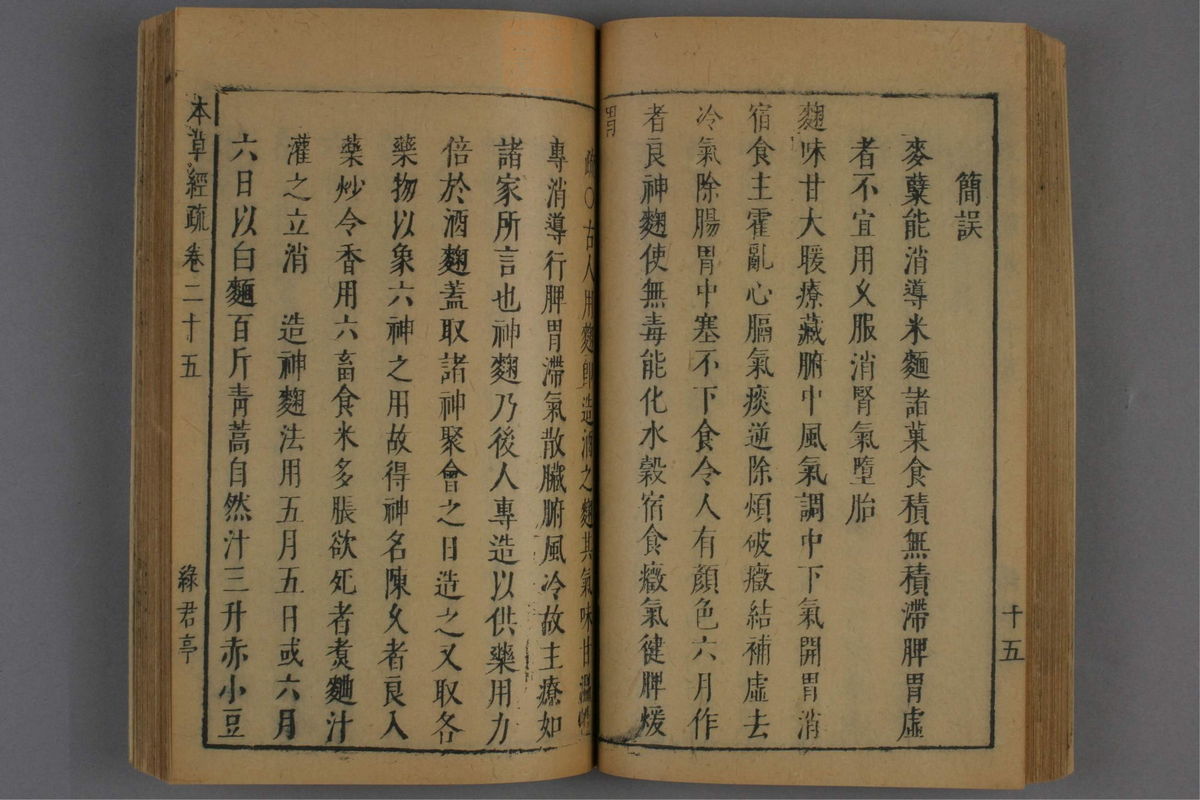 十五
簡誤
麥蘖能消導米麵諸菓食積無積滯脾胃虛
者不宜用久服消腎氣墮胎
麴味甘大暖療藏腑中風氣調中下氣開胃消
宿食主霍亂心膈氣痰逆除煩破癥結補虛去
冷氣除腸胃中塞不下食令人有顏色六月作
者良神麴使無毒能化水穀宿食癥氣健脾煖
胃
疏○古人用麴即造酒之麴其氣味甘溫性
專消導行脾胃滯氣散臟腑風冷故主療如
諸家所言也神麴乃後人專造以供藥用力
倍於酒麴蓋取諸神聚會之日造之又取各
藥物以象六神之用故得神名陳久者良入
藥炒令香用六畜食米多脹欲死者煑麯汁
灌之立消　造神麴法用五月五日或六月
六日以白麵百斤靑蒿自然汁三升赤小豆
本草經疏 卷二十五
綠君亭